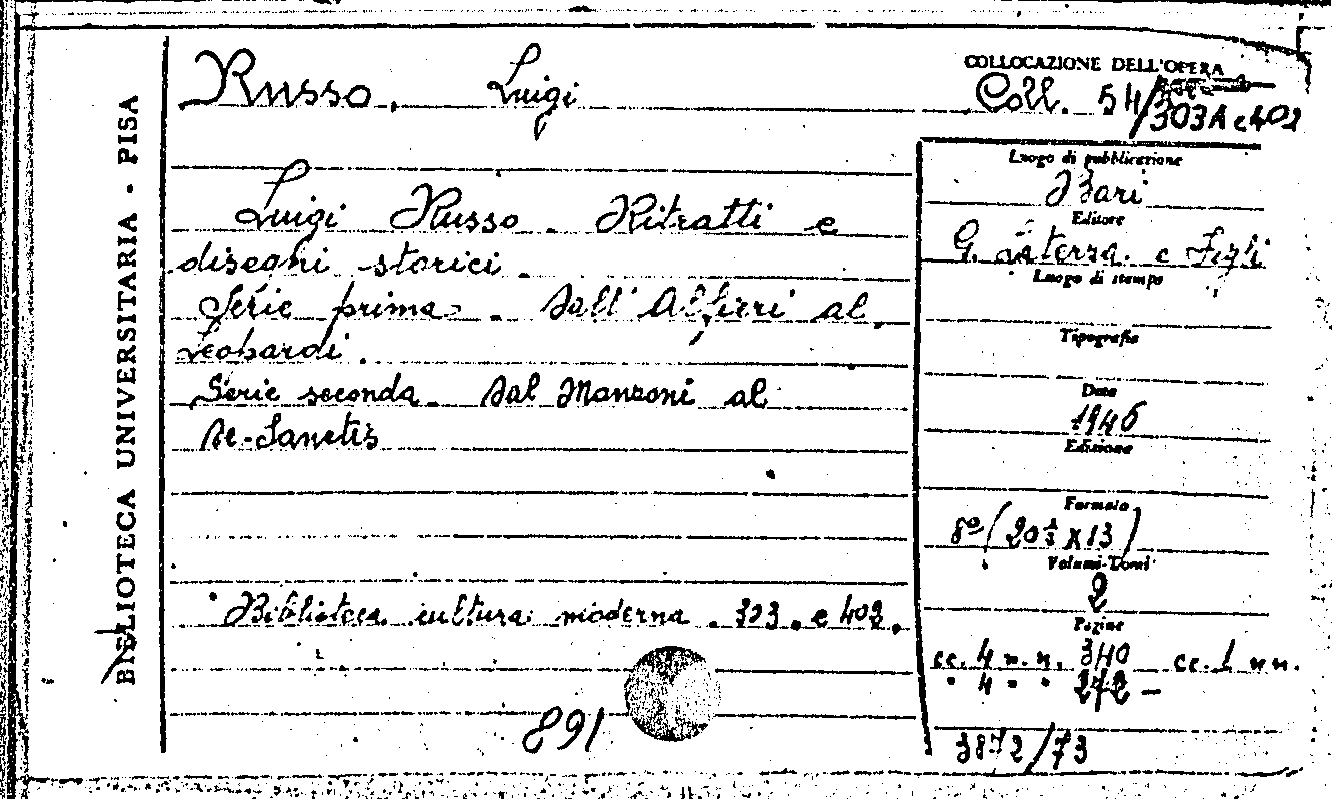 BIBLIOTECA UNIVERSITARIA - PISA
Russo, Luigi
COLLOCAZIONE DELL'OPERA
Coll. 54/
303A e 402
Luigi Russo. Ritratti e
disegni storici.
Serie prima. Dall'Alfieri al
Leopardi.
Serie seconda. Dal Manzoni al
De-Sanctis
Biblioteca cultura moderna. 303. e 402.
891
Luogo di pubblicazione
Bari
Editore
G. Laterza. e Figli
Luogo di stampa
Tipografia
Data
1946
Edizione
Formato
8º (20½ x 13)
Volumi-Tomi
2
Pagine
cc. 4 n. n. 340 cc. 1 nn.
" 4 " " 272 –
3872/73